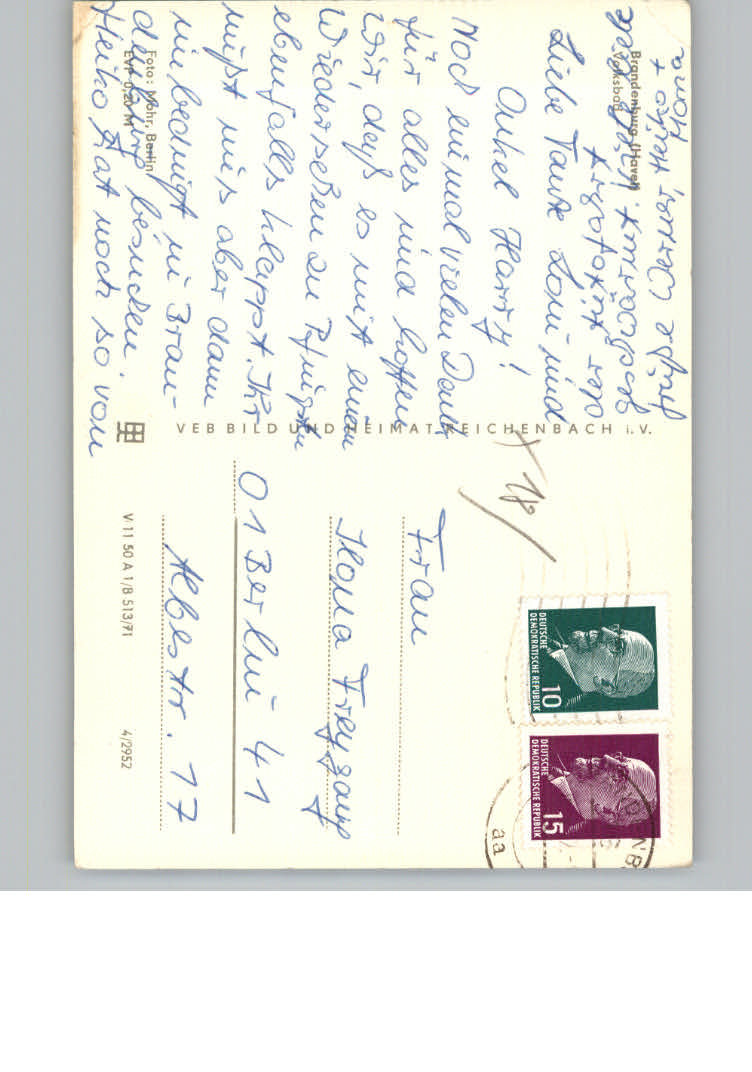 Brandenburg (Havel)
Volksbad
Liebe Tante Loni und
Onkel Harry!
Noch einmal vielen Dank
für alles und hoffen
wir, daß es mit einem
Wiedersehen zu Pfingsten
ebenfalls klappt. Ihr
müßt uns aber dann
unbedingt in Bran-
denburg besuchen.
Heiko hat noch so von
Werner, Heiko +
Mona
Foto: Mohr, Berlin
EVP 0,20 M
VEB BILD UND HEIMAT REICHENBACH i. V.
V 11 50 A 1/B 513/71
4/2952
Frau
Ilona Freygang
01 Berlin 41
Albestr. 17
DEUTSCHE
DEMOKRATISCHE REPUBLIK
10
DEUTSCHE
DEMOKRATISCHE REPUBLIK
15
aa